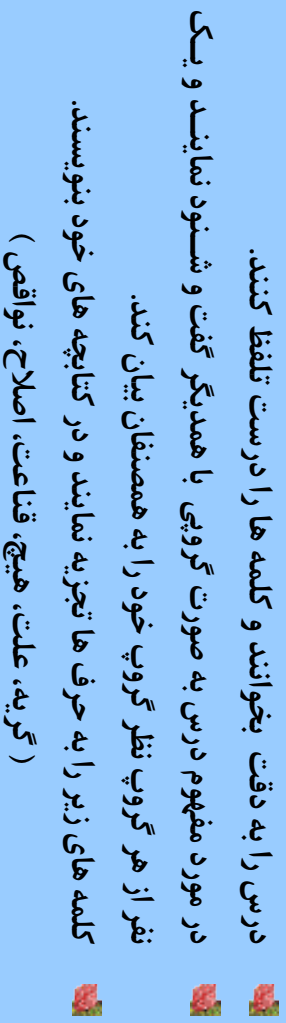 درس را به دقت بخوانند و کلمه ها را درست تلفظ کنند.
در مورد مفهوم درس به صورت گروپی با همدیگر گفت و شنود نمایند و یک
نفر از هر گروپ نظر گروپ خود را به همصنفان بیان کند.
کلمه های زیر را به حرف ها تجزیه نمایند و در کتابچه های خود بنویسند.
( گریه، علت، هیچ، قناعت، اصلاح، نواقص )